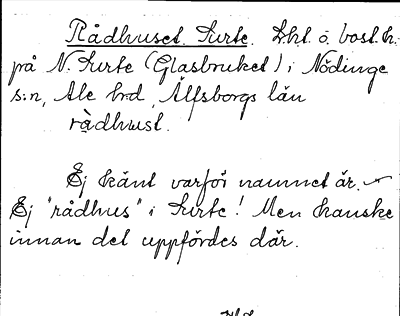 Rådhuset. Surte. Lht o. bost.h.
på N. Surte (Glasbruket) i Nödinge
s:n, Ale hrd, Älfsborgs län
ràdhust.
Ej känt varför namnet är.
Ej "rådhus" i Surte! Men kanske
innan det uppfördes där.